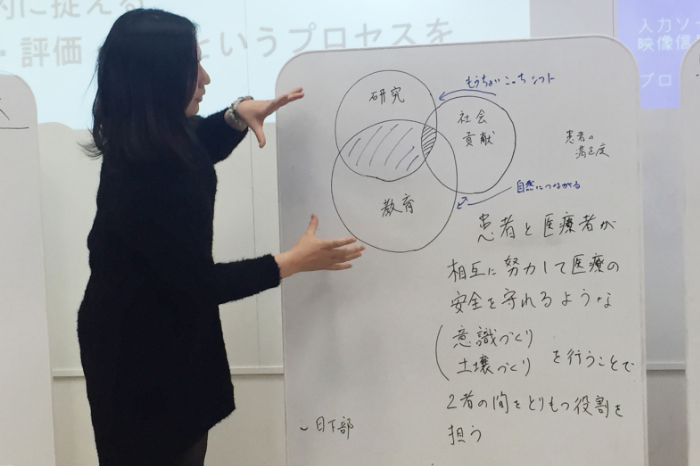 的に捉える
・評価
というプロセスを
入力ソ
映像信
プロ
研究
もうちょいこっち シフト
社会
貢献
患者の
満足度
教育
自然につながる
患者と医療者が
相互に努力して医療の
安全を守れるような
(意識づくり
土壌づくり を行うことで
2者の間をとりもつ役割を
担う
~日下部